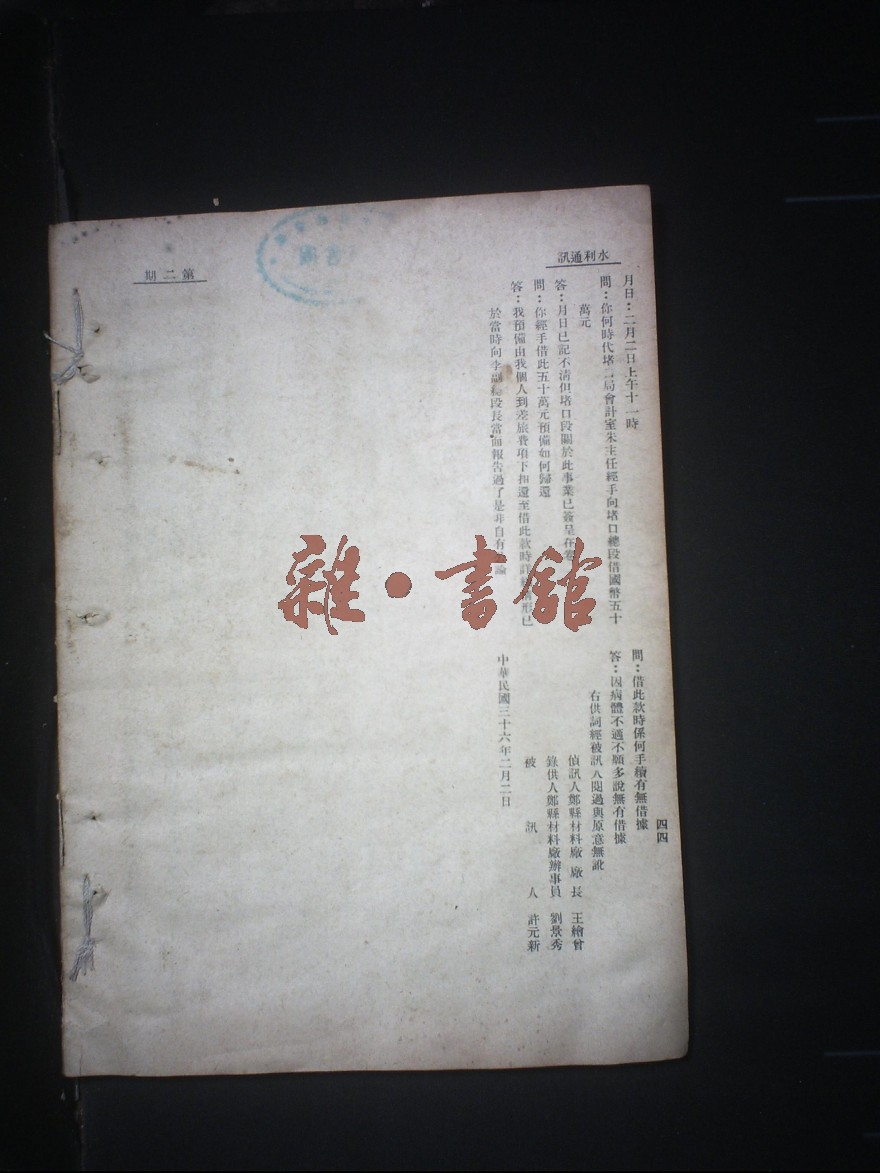 水利通訊
四四
月日：二月二日上午十一時
問：你何時代堵口局會計室朱主任經手向堵口總段借國幣五十
萬元
答：月日已記不清但堵口段關於此事業已簽呈在卷
問：你經手借此五十萬元預備如何歸還
答：我預備由我個人到差旅費項下扣還至借此款時詳情形已
於當時向李副總段長當面報告過了是非自有論
問：借此款時係何手續有無借據
答：因病體不適不願多說無有借據
右供詞經被訊人閱過與原意無訛
偵訊人鄭縣材料廠廠長 王繪曾
錄供人鄭縣材料廠辦事員 劉景秀
被訊人 許元新
中華民國三十六年二月二日
第二期
雜·書館